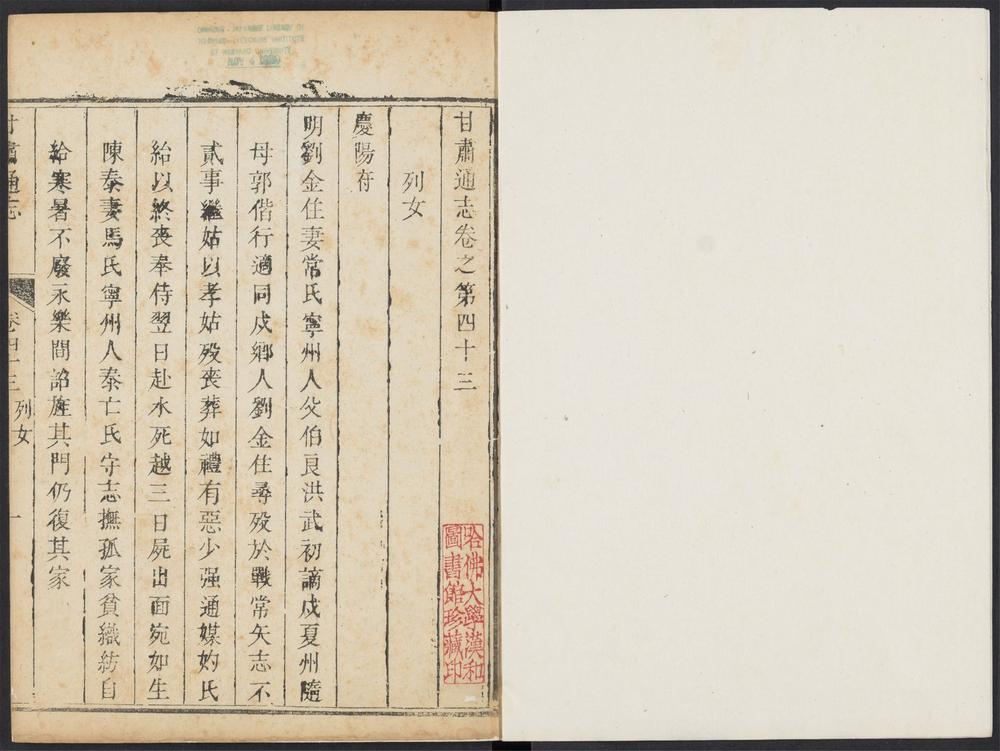 甘肅通志卷之第四十三
列女
慶陽府
明劉金住妻常氏寧州人父伯良洪武初謫戍夏州隨
母郭偕行適同戍鄉人劉金住尋歿於戰常矢志不
貳事繼姑以孝姑歿喪葬如禮有惡少强通媒妁氏
紿以終喪奉侍翌日赴水死越三日屍出面宛如生
陳泰妻馬氏寧州人泰亡氏守志撫孤家貧織紡自
給寒暑不廢永樂間詔旌其門仍復其家
甘肅通志
卷四十三
列女
一
哈佛大學漢和
圖書館珍藏印